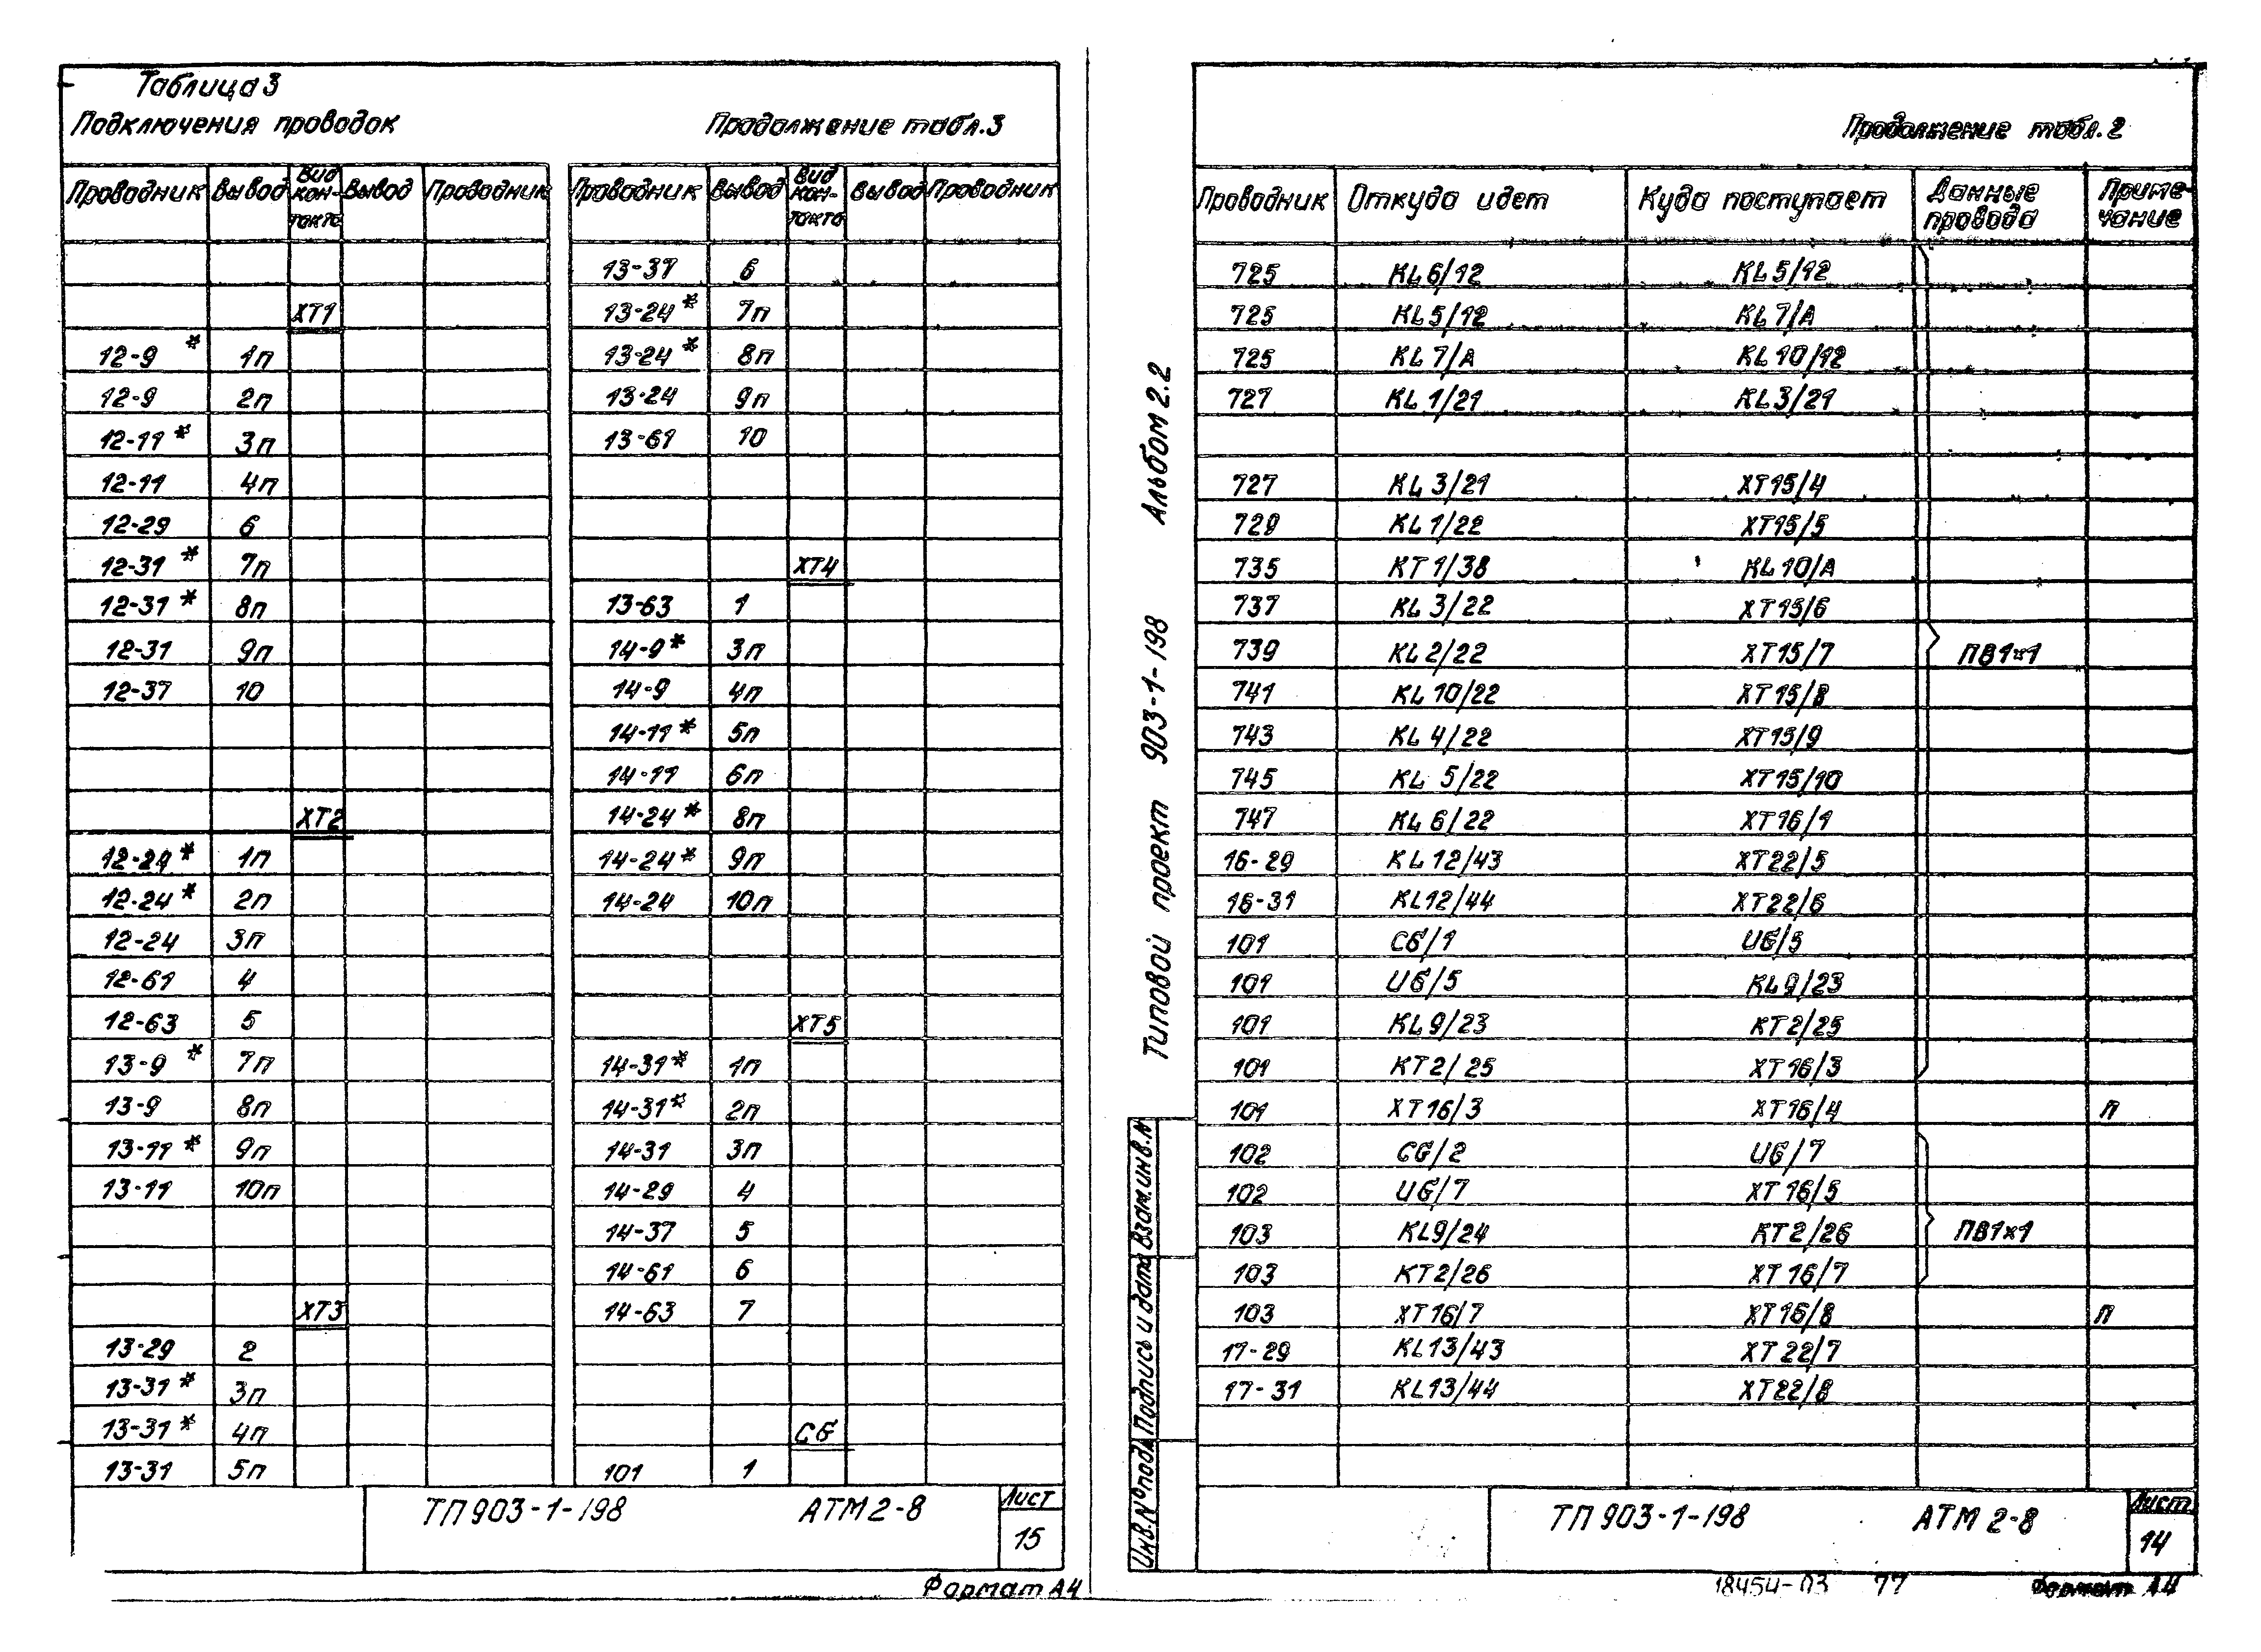 Таблица 3
Подключения проводок
Продолжение табл.3
Проводник Вывод Вид контакта Вывод Проводник
ХТ1
12-9* 1п
12-9 2п
12-11* 3п
12-11 4п
12-29 6
12-31* 7п
12-31* 8п
12-31 9п
12-37 10
ХТ2
12-24* 1п
12-24* 2п
12-24 3п
12-61 4
12-63 5
13-9* 7п
13-9 8п
13-11* 9п
13-11 10п
ХТ3
13-29 2
13-31* 3п
13-31* 4п
13-31 5п
Проводник Вывод Вид контакта Вывод Проводник
13-37 6
13-24* 7п
13-24* 8п
13-24 9п
13-61 10
ХТ4
13-63 1
14-9* 3п
14-9 4п
14-11* 5п
14-11 6п
14-24* 8п
14-24* 9п
14-24 10п
ХТ5
14-31* 1п
14-31* 2п
14-31 3п
14-29 4
14-37 5
14-61 6
14-63 7
СG
101 1
ТП 903-1-198 АТМ2-8 Лист
15
Формат А4
Альбом 2.2
Типовой проект 903-1-198
Взам.инв.№
Подпись и дата
Инв.№подл
Продолжение табл. 2
Проводник Откуда идет Куда поступает Данные провода Примечание
725 KL6/12 KL5/12
725 KL5/12 KL7/А
725 KL7/А KL10/12
727 KL1/21 KL3/21
727 KL3/21 ХТ15/4
729 KL1/22 ХТ15/5
735 КТ1/38 KL10/А
737 KL3/22 ХТ15/6
739 KL2/22 ХТ15/7 ПВ1×1
741 KL10/22 ХТ15/8
743 KL4/22 ХТ15/9
745 KL5/22 ХТ15/10
747 KL6/22 ХТ16/1
16-29 KL12/43 ХТ22/5
16-31 KL12/44 ХТ22/6
101 СG/1 UG/5
101 UG/5 KL9/23
101 KL9/23 КТ2/25
101 КТ2/25 ХТ16/3
101 ХТ16/3 ХТ16/4 п
102 СG/2 UG/7
102 UG/7 ХТ16/5
103 KL9/24 КТ2/26 ПВ1×1
103 КТ2/26 ХТ16/7
103 ХТ16/7 ХТ16/8 п
17-29 KL13/43 ХТ22/7
17-31 KL13/44 ХТ22/8
ТП 903-1-198 АТМ 2-8 Лист
14
18454-03 77 Формат А4